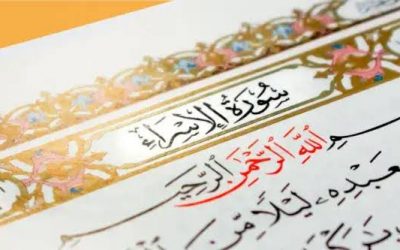 سُورَةُ الإِسْرَاءِ
ـمِ اللَّهِ الرَّحْمَنِ الرَّحِيمِ
بِعَبْدِهِ لَيْلًا مِّنَ